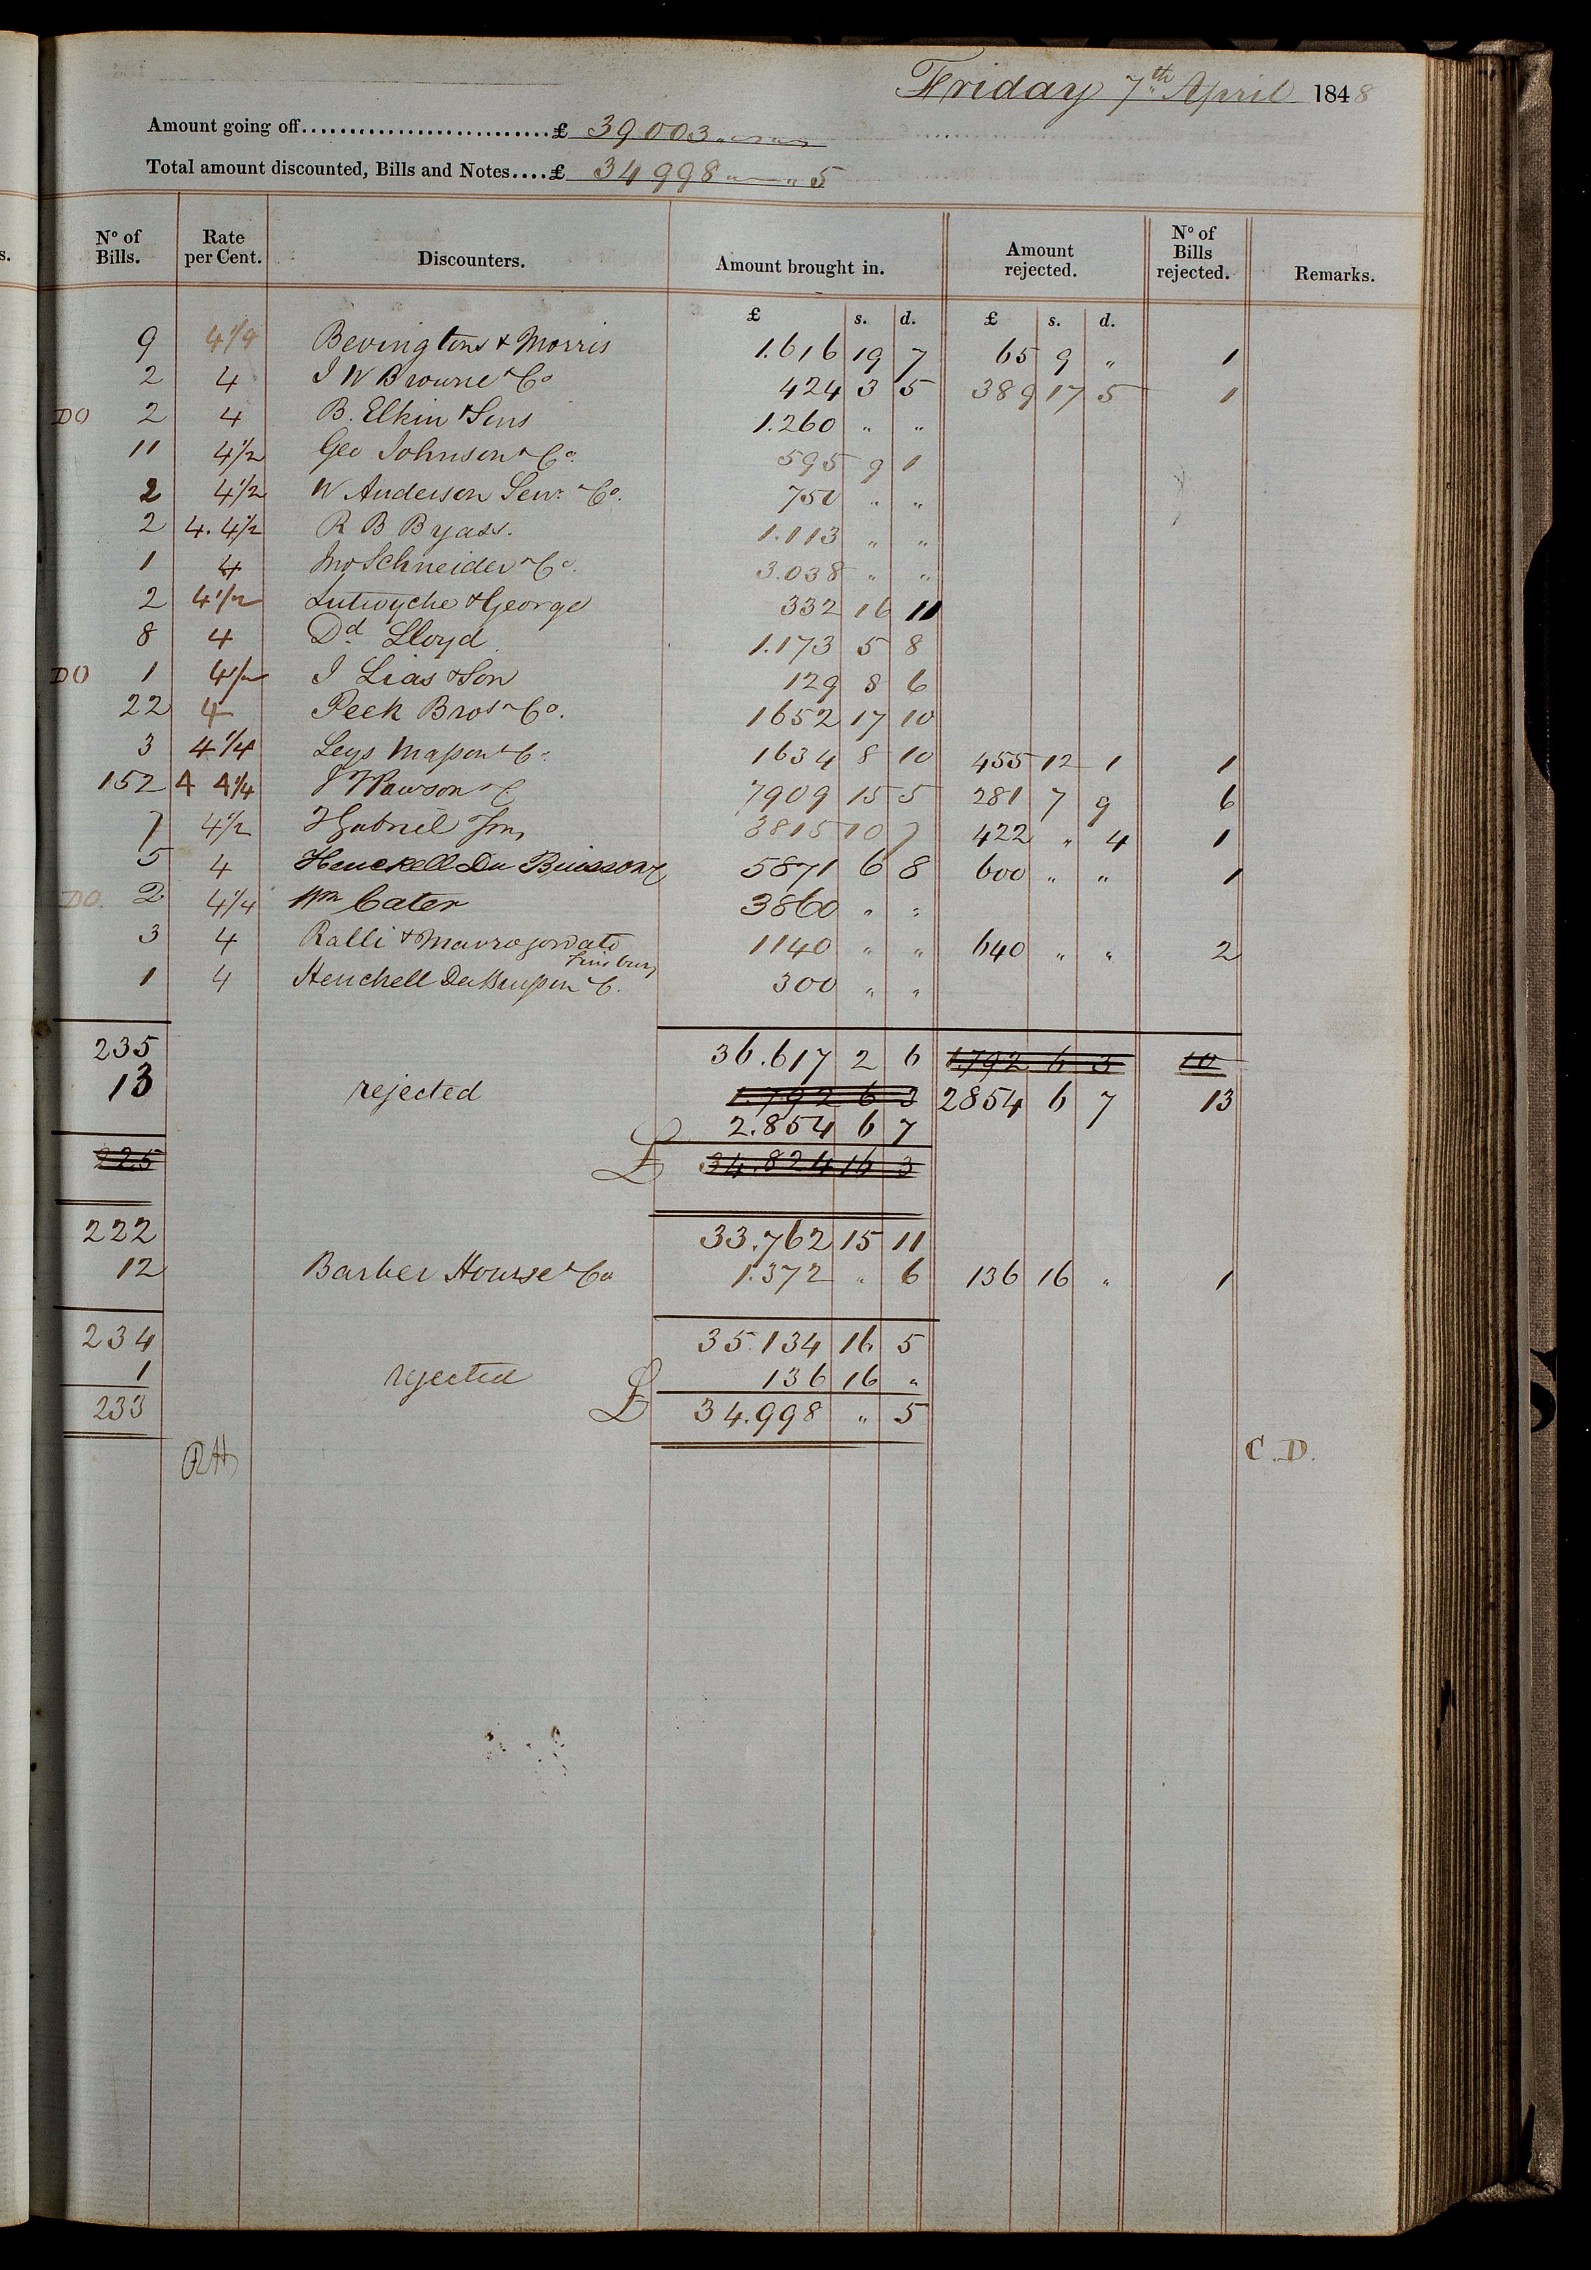 Friday 7th April 1848
Amount going off...........................£ 39.003 " " "
Total amount discounted, Bills and Notes....£ 34998 " — " 5
No of Bills. Rate per Cent. Discounters. Amount brought in. Amount rejected. No of Bills rejected. Remarks.
£ s. d. £ s. d.
9 4 1/4 Bevingtons & Morris 1.616 19 7 65 9 " 1
2 4 I W Browne & Co 424 3 5 389 17 5 1
DO 2 4 B. Elkin & Sons 1.260 " "
11 4 1/2 Geo Johnson & Co. 595 9 1
2 4 1/2 W Anderson Senr & Co. 750 " "
2 4. 4 1/2 R B Byass. 1.113 " "
1 4 Jno Schneider & Co. 3.038 " "
2 4 1/2 Lutwyche & George 332 16 11
8 4 Dd Lloyd 1.173 5 8
DO 1 4 1/2 I Lias & Son 129 8 6
22 4 Peek Bros & Co. 1652 17 10
3 4 1/4 Leys Masson & Co. 1634 8 10 455 12 1 1
152 4 4 1/4 J F Pawson & C 7909 15 5 281 7 9 6
7 4 1/2 T Gabriel Jnr 3815 10 7 422 " 4 1
5 4 Henckell Du Buisson & C 5871 6 8 600 " " 1
DO. 2 4 1/4 Wm Cater 3860 " "
3 4 Ralli & Mavrogordato 1140 " " 640 " " 2
Finsbury
1 4 Henckell DuBuisson & C. 300 " "
235 36.617 2 6 1.792 6 3 10
13 rejected 1.792 6 3 2854 6 7 13
2.854 6 7
225 £ 34.824 16 3
222 33.762 15 11
12 Barber Howse & Co 1.372 " 6 136 16 " 1
234 35.134 16 5
1 rejected 136 16 "
233 £ 34.998 " 5
RH C.D.